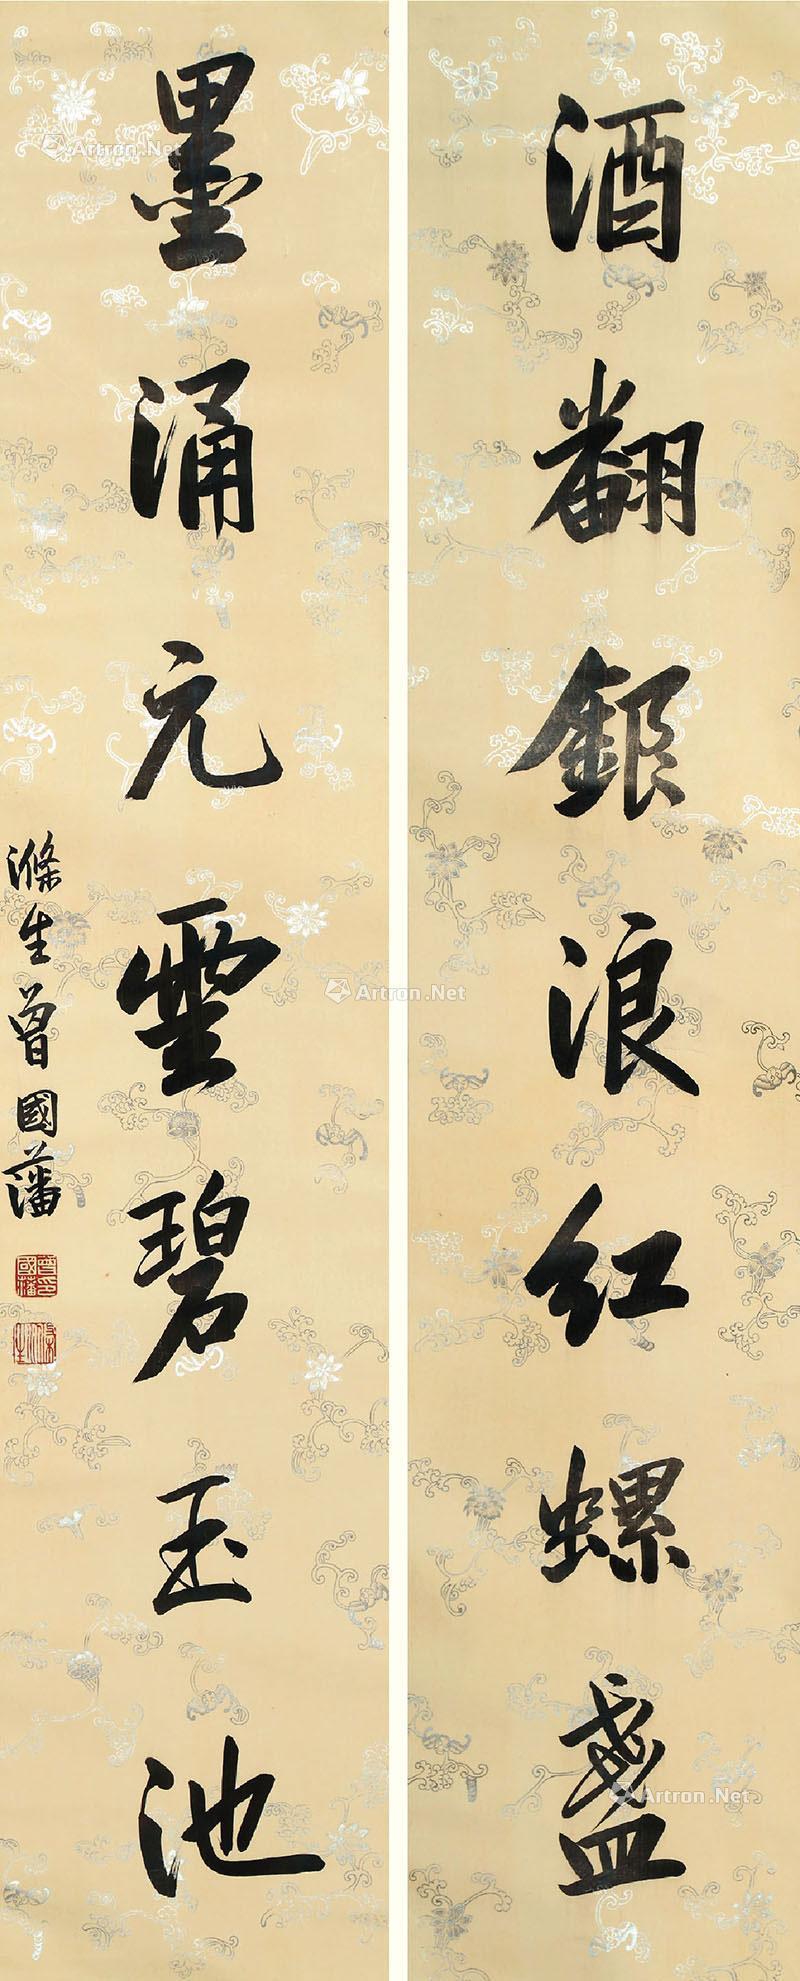 酒翻銀浪紅螺盞
墨涌元雲碧玉池
滌生曾國藩
曾國藩印
滌生
Artron.Net
Artron.Net
Artron.Net